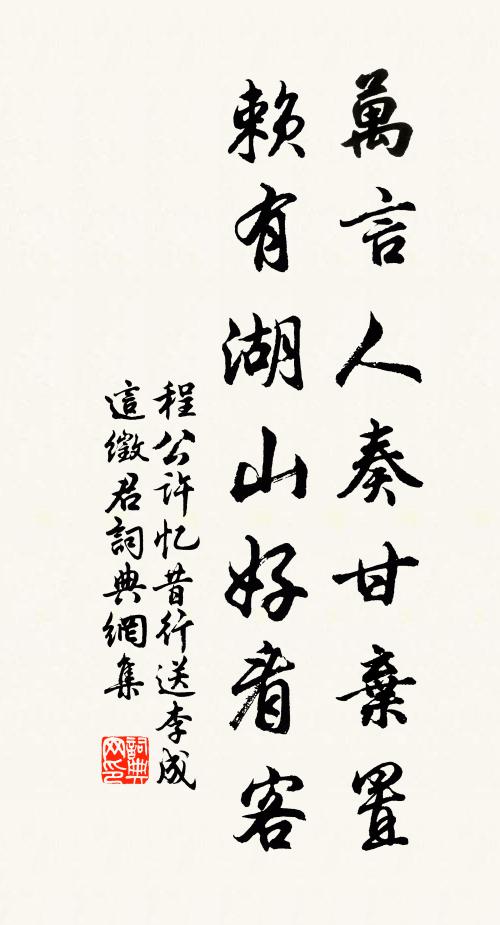 萬言人奏甘棄置
賴有湖山好看客
程公許忆昔行送李成
這徵君詞典網集
詞典网印